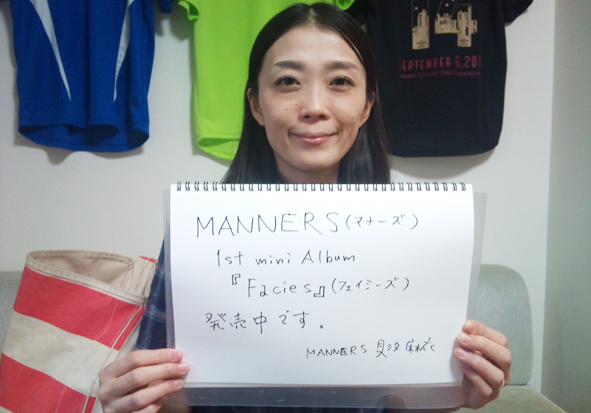 SEPTEMBER 6, 201
MANNERS(マナーズ)
1st mini Album
『Facies』(フェイシーズ)
発売中です。
MANNERS 見汐麻衣